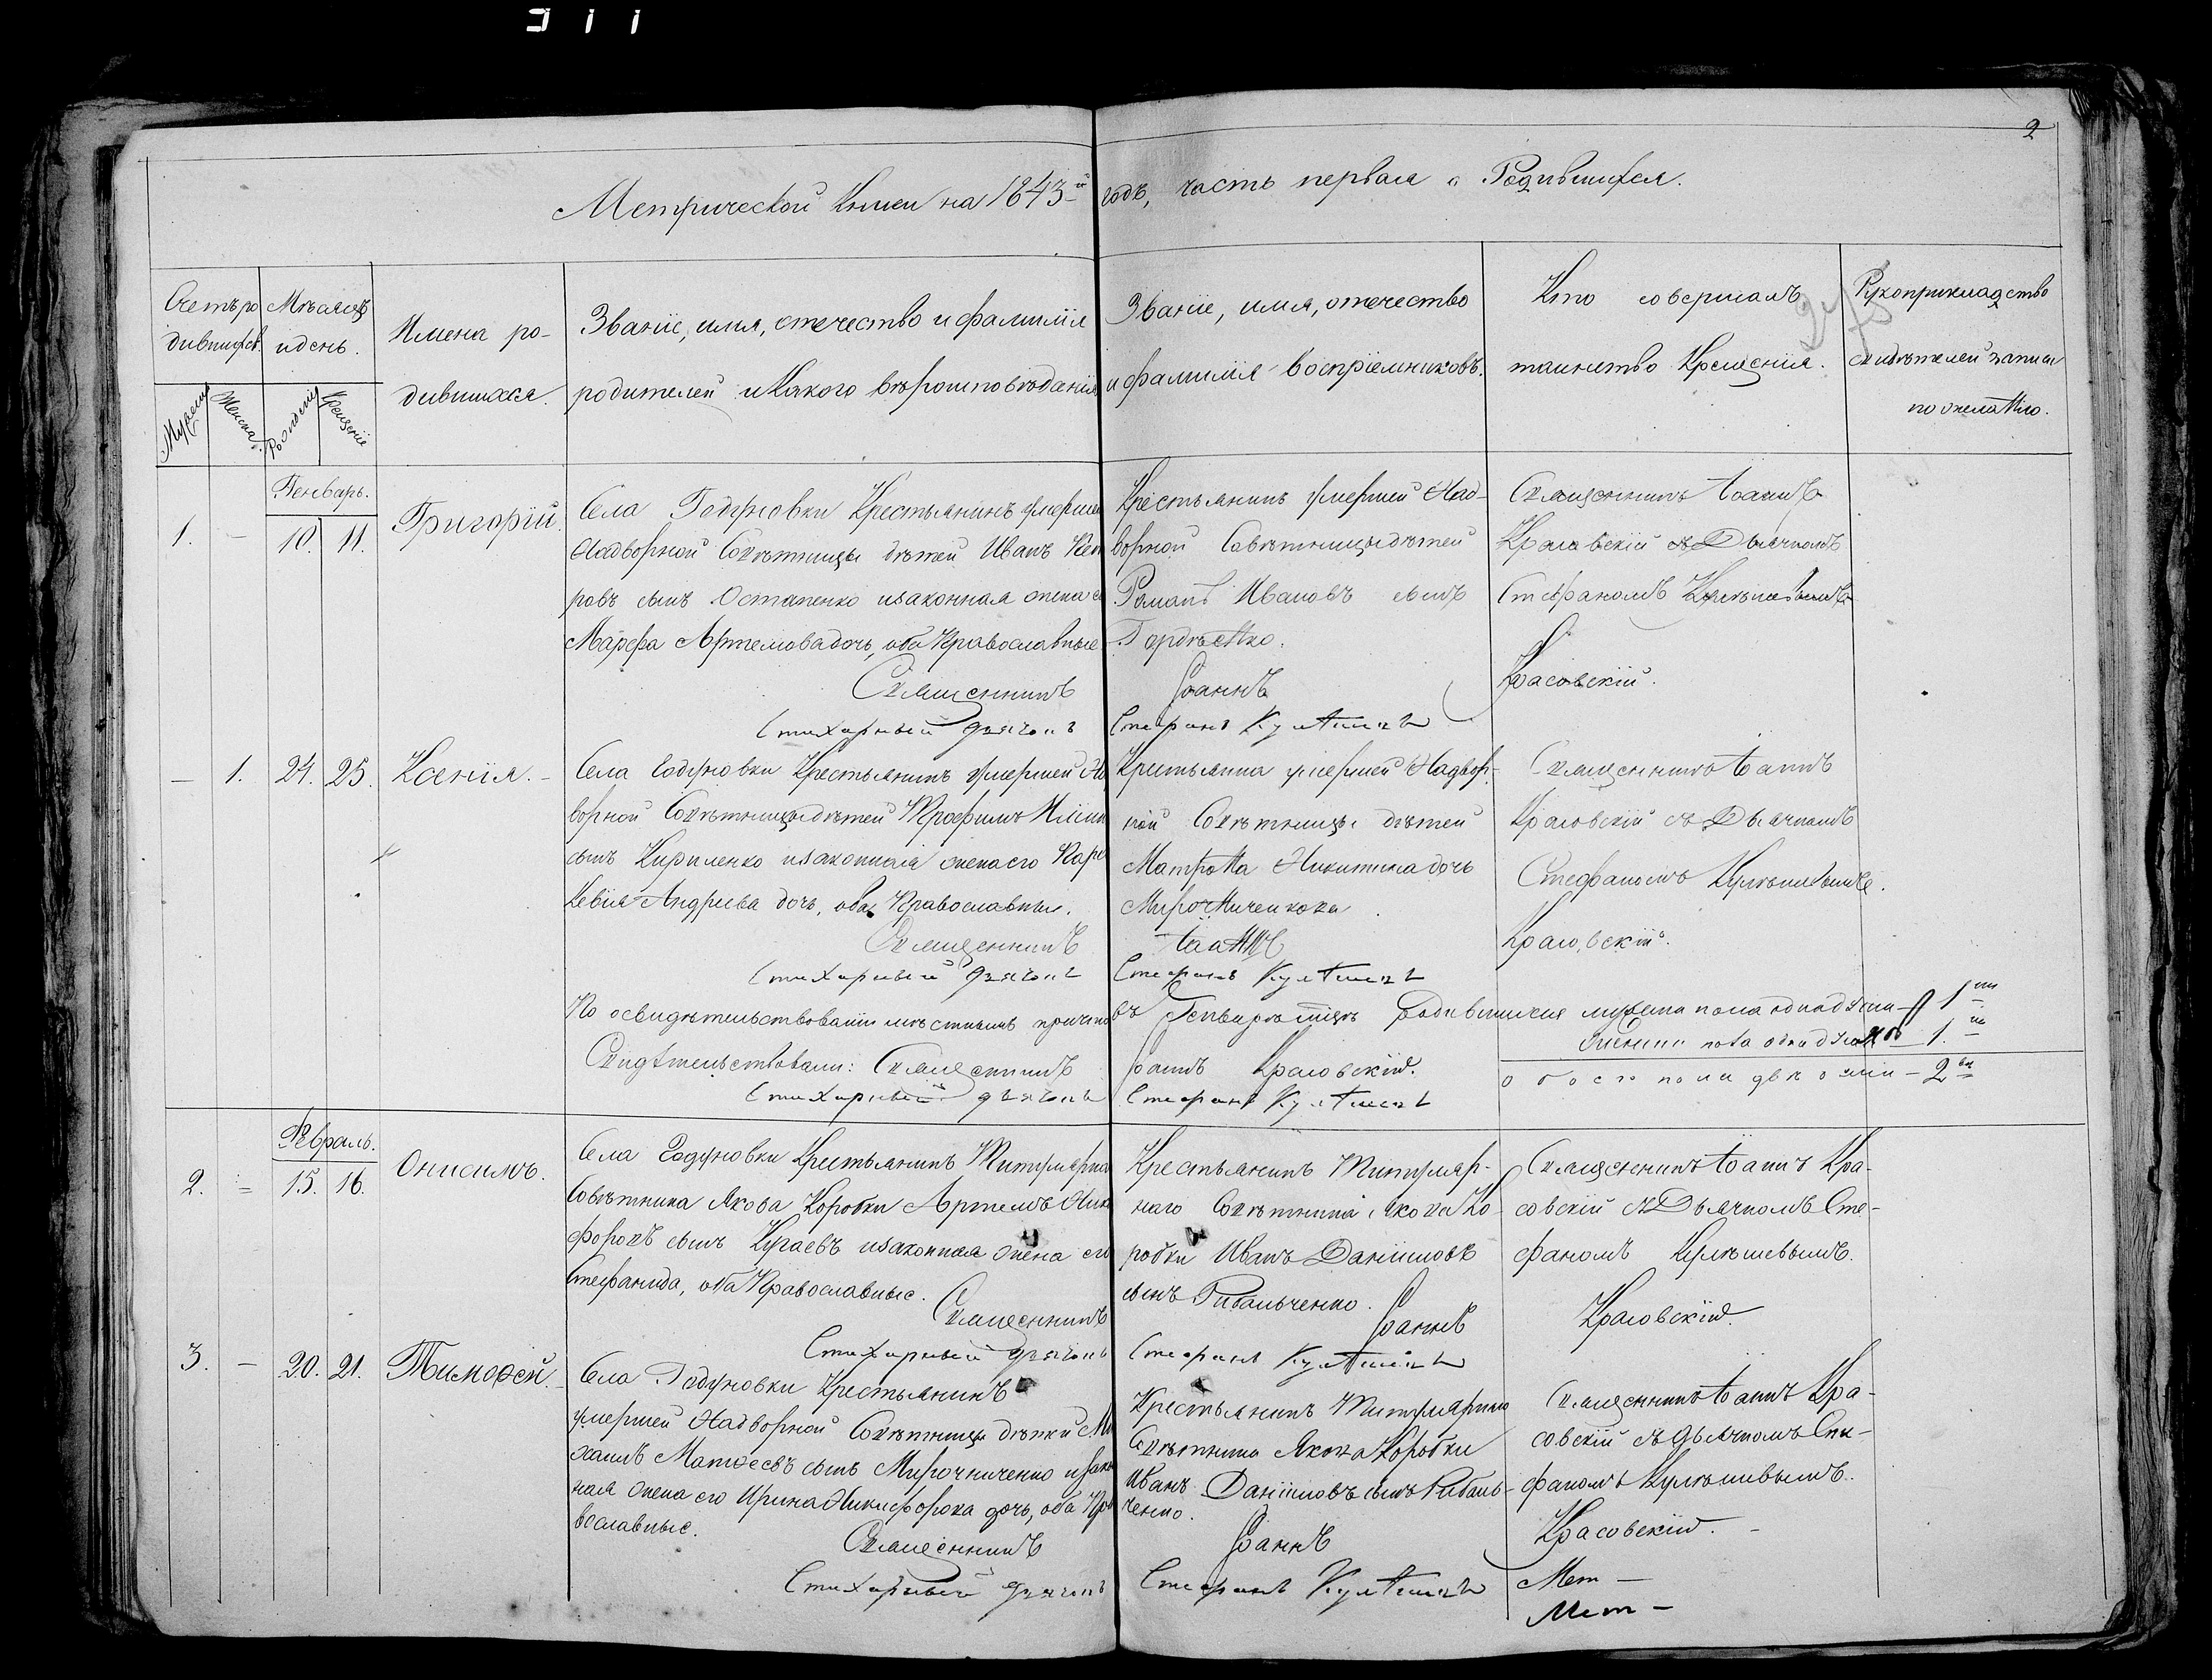 2
Метрической Книги на 1843й годъ, часть первая о Родившихся.
Счетъ ро
дившихся.
Мѣсяцъ
и день.
Имена ро-
дившихся.
Званіе, имя, отечество и фамилія
родителей и какого вѣроисповѣданія
Званіе, имя, отечество
и фамилія воспріемниковъ.
Кто совершалъ
таинство Крещенія.
Рукоприкладство
свидѣтелей записи
по желанію.
Мужеска
Женска.
Рожденія
Крещенія
Генварь.
1. – 10. 11. Григорій.
Села Годуновки Крестьянинъ умершей
Надворной Совѣтницы дѣтей Иванъ
ровъ сынъ Остапенко и законная жена
Марфа Артемова дочь, оба Православные
Священникъ
Стихарный дьячокъ
Крестьянинъ умершей Над-
ворной Совѣтницы дѣтей
Романъ Ивановъ сынъ
Гордѣенко.
Іоаннъ
Стефанъ
Священникъ Іоаннъ
Красовскій съ Дьячкомъ
Стефаномъ
Красовскій.
– 1. 24. 25. Ксенія. –
Села Годуновки Крестьянинъ умершей На
ворной Совѣтницы дѣтей Трофимъ
сынъ Кириленко и законная жена его Пара
кевія Андреева дочь, оба Православные.
Священникъ
Стихарный дьячокъ
Крестьянка умершей Надвор-
ной Совѣтницы дѣтей
Матрона Никитина дочь
Мирошниченкова
Іоаннъ
Стефанъ
Священникъ Іоаннъ
Красовскій съ Дьячкомъ
Стефаномъ
Красовскій.
По освидѣтельствованіи мѣстнымъ причто въ Генварѣ мцѣ родившихся мужеска пола одна душа – 1
женска пола одна душа – 1.
обоего пола двѣ души – 2
Свидѣтельствовали: Священникъ Іоаннъ Красовскій.
Стихарный дьячокъ Стефанъ
Февраль.
2. = 15. 16. Онисимъ.
Села Годуновки Крестьянинъ Титулярна
Совѣтника Якова Коробки Артемъ Ники
форовъ сынъ Кугаевъ и законная жена его
Стефанида, оба Православные.
Священникъ
Стихарный дьячокъ
Крестьянинъ Титуляр-
наго Совѣтника Якова Ко-
робки Иванъ Даніиловъ
сынъ Рибальченко.
Іоаннъ
Стефанъ
Священникъ Іоаннъ Кра-
совскій съ Дьячкомъ Сте-
фаномъ
Красовскій.
3. – 20. 21. Тимофей. –
Села Годуновки Крестьянинъ
умершей Надворной Совѣтницы дѣтей Ми
хаилъ Матвеевъ сынъ Мирошниченко и закон
ная жена его Ирина Никифорова дочь, оба Пра
вославные.
Священникъ
Стихарный дьячокъ
Крестьянинъ Титулярнаго
Совѣтника Якова Коробки
Иванъ Даніиловъ сынъ Рибаль-
ченко.
Іоаннъ
Стефанъ
Священникъ Іоаннъ Кра-
совскій съ дьячкомъ Сте-
фаномъ
Красовскій. –
Мет –
Мет –